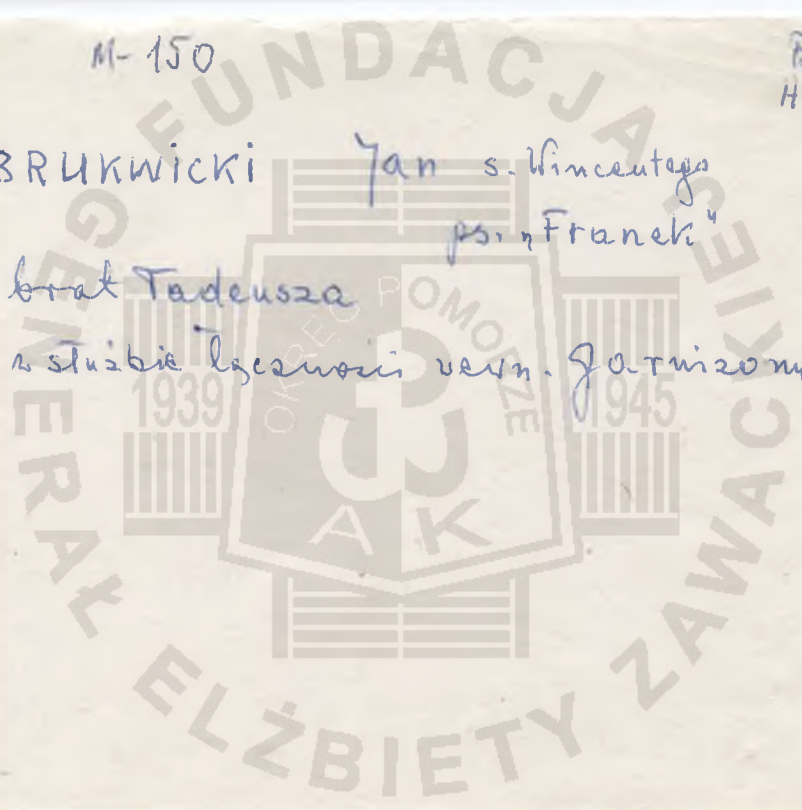 M-150
H
BRUKWICKI Jan s. Wincentego
ps. „Franek"
brat Tadeusza
w służbie łączności wewn. Garnizonu
FUNDACJA GENERAŁ ELŻBIETY ZAWACKIEJ
OKRĘG POMORZE
1939 1945
AK